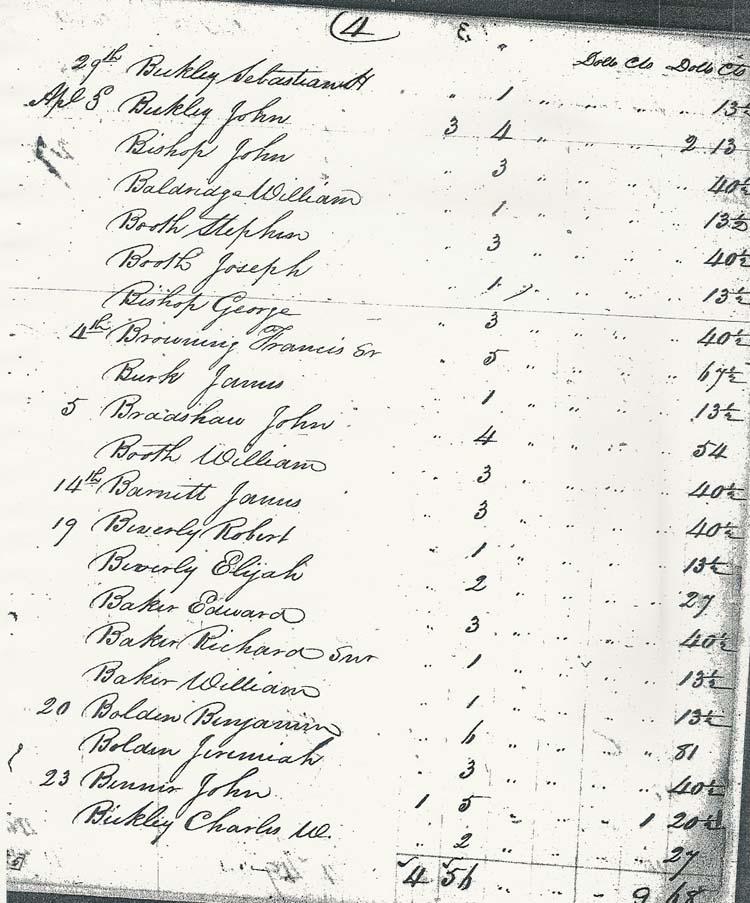 4
Dolls Cts Dolls Cts
29th Bickley Sebastian H " 1 " " " " 13½
Apl 3 Bickley John 3 4 " " " 2 13
Bishop John " 3 " " " " 40½
Baldridge William " 1 " " " " 13½
Booth Stephen " 3 " " " " 40½
Booth Joseph " 1 " " " " 13½
Bishop George " 3 " " " " 40½
4th Browning Francis Sr " 5 " " " " 67½
Burk James " 1 " " " " 13½
5 Bradshaw John " 4 " " " " 54
Booth William " 3 " " " " 40½
14th Barnett James " 3 " " " " 40½
19 Beverly Robert " 1 " " " " 13½
Beverly Elijah " 2 " " " " 27
Baker Edward " 3 " " " " 40½
Baker Richard Snr " 1 " " " " 13½
Baker William " 1 " " " " 13½
20 Bolden Benjamin " 6 " " " " 81
Bolden Jeremiah " 3 " " " " 40½
23 Benner John 1 5 " " " 1 20½
Bickley Charles W. " 2 " " " " 27
4 56 " " " 9 68